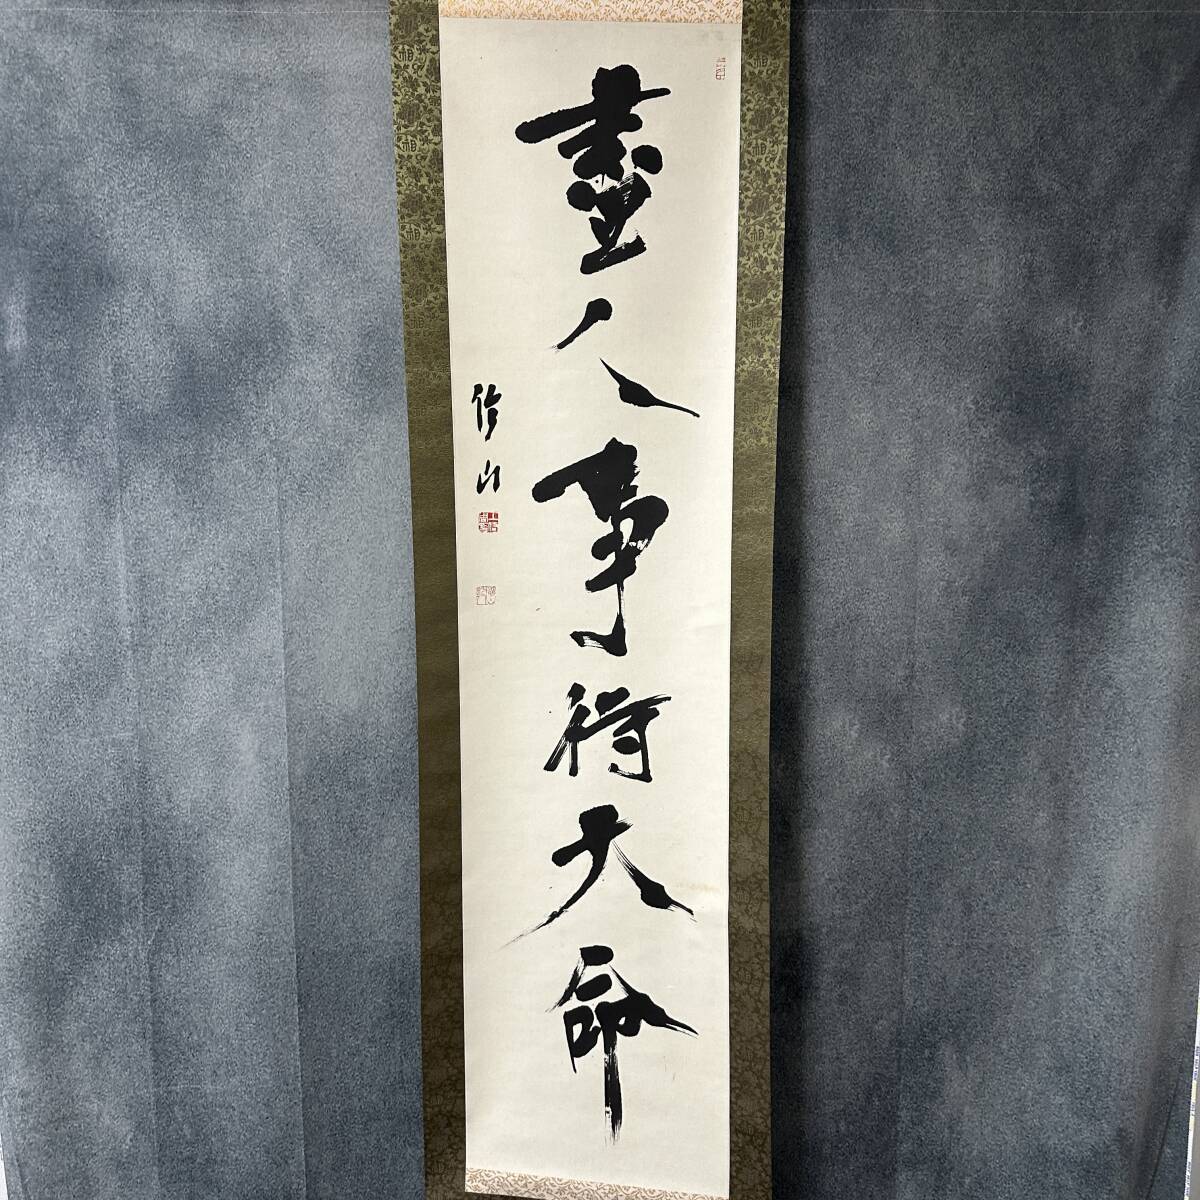 盡人事待天命
修山